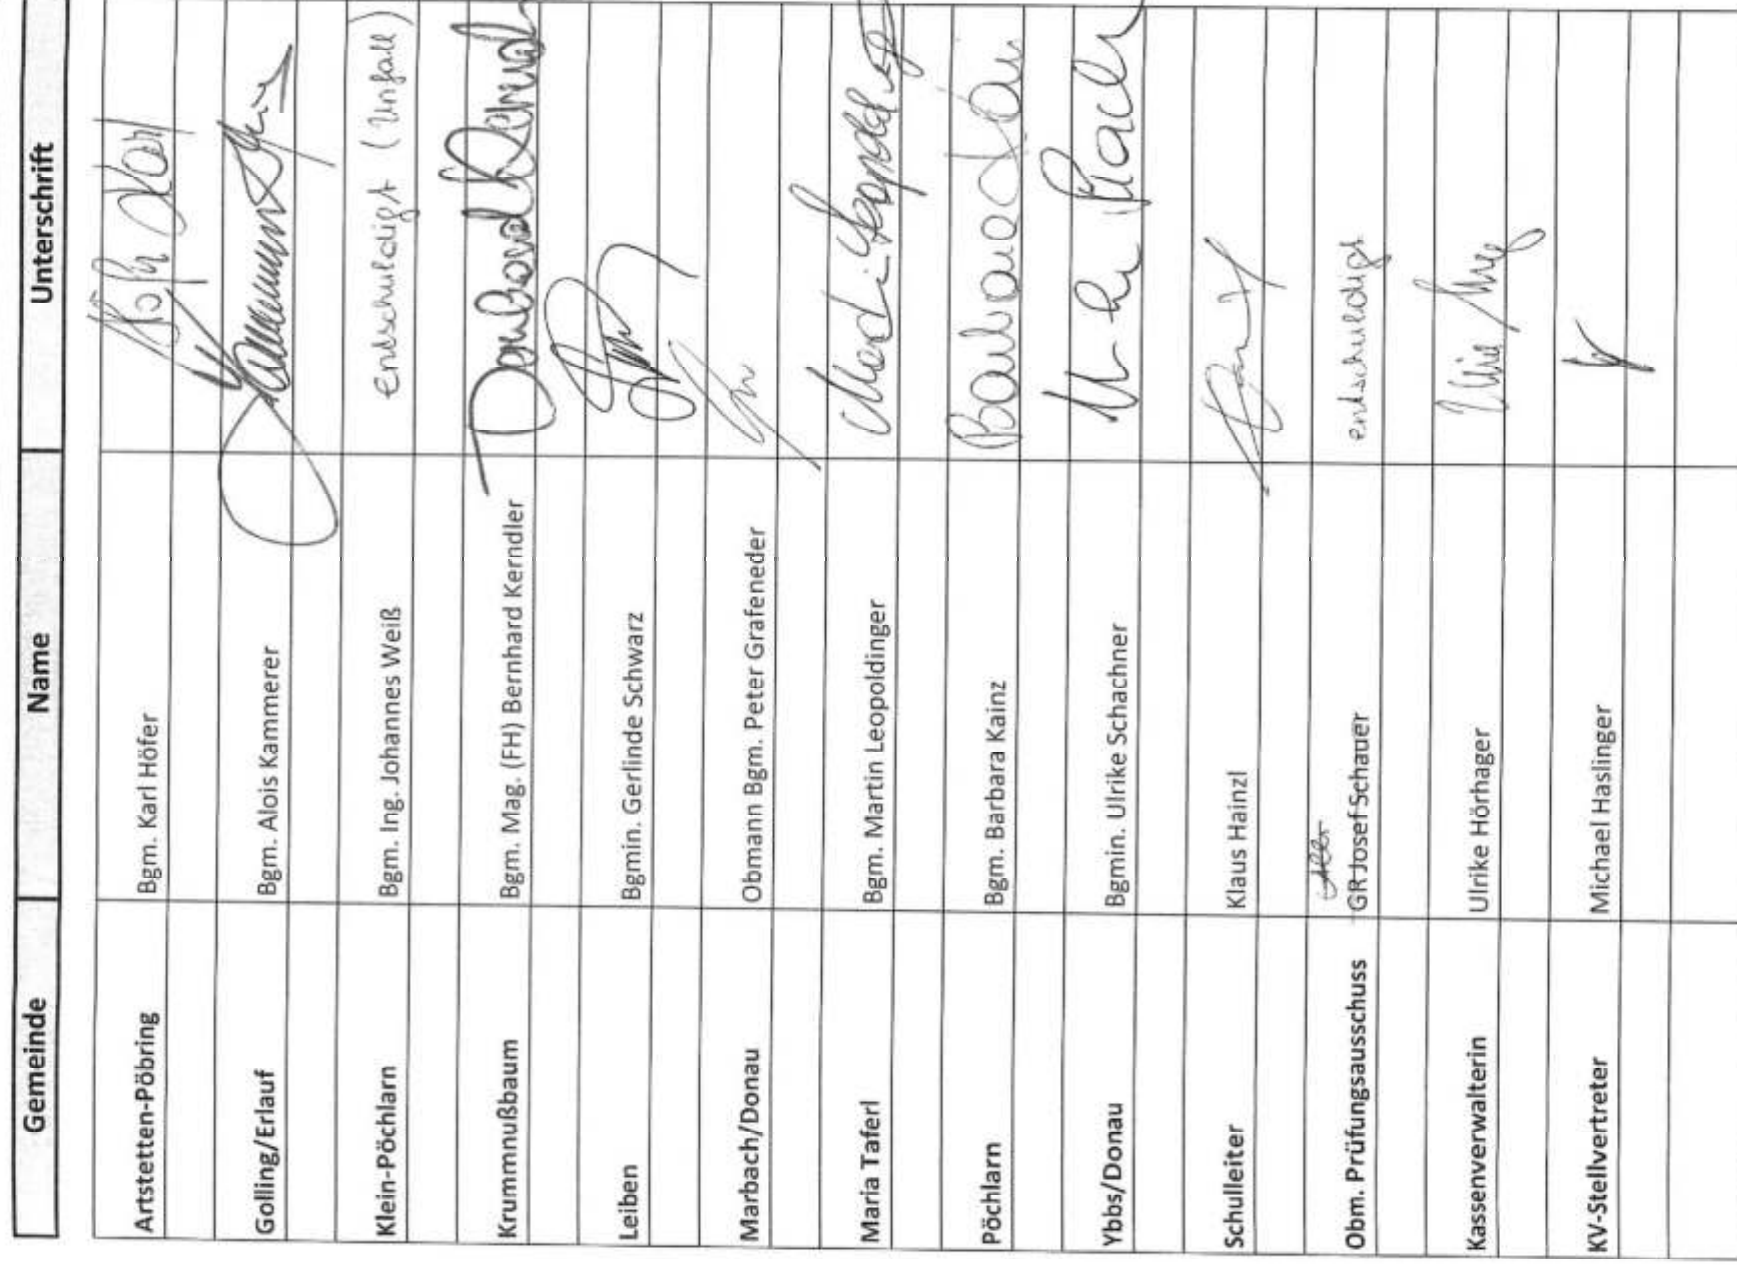 Gemeinde Name Unterschrift
Artstetten-Pöbring Bgm. Karl Höfer Höfer Karl
Golling/Erlauf Bgm. Alois Kammerer
Klein-Pöchlarn Bgm. Ing. Johannes Weiß entschuldigt (Unfall)
Krummnußbaum Bgm. Mag. (FH) Bernhard Kerndler
Leiben Bgmin. Gerlinde Schwarz
Marbach/Donau Obmann Bgm. Peter Grafeneder
Maria Taferl Bgm. Martin Leopoldinger
Pöchlarn Bgm. Barbara Kainz Barbara
Ybbs/Donau Bgmin. Ulrike Schachner
Schulleiter Klaus Hainzl
Obm. Prüfungsausschuss GR Josef Schauer entschuldigt
Kassenverwalterin Ulrike Hörhager
KV-Stellvertreter Michael Haslinger